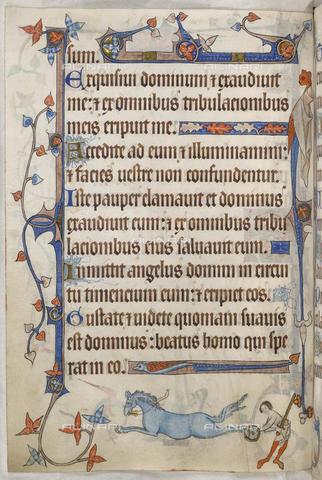 sum.
Exquisiui dominum ⁊ exaudiuit
me: ⁊ ex omnibus tribulacionibus
meis eripuit me.
Accedite ad eum ⁊ illuminamini:
⁊ facies uestre non confundentur.
Iste pauper clamauit et dominus
exaudiuit eum: ⁊ ex omnibus tribu
lacionibus eius saluauit eum.
Inmittit angelus domini in circui
tu timencium eum: ⁊ eripiet eos.
Gustate ⁊ uidete quoniam suauis
est dominus: beatus homo qui spe
rat in eo.
ALINARI
ALINARI